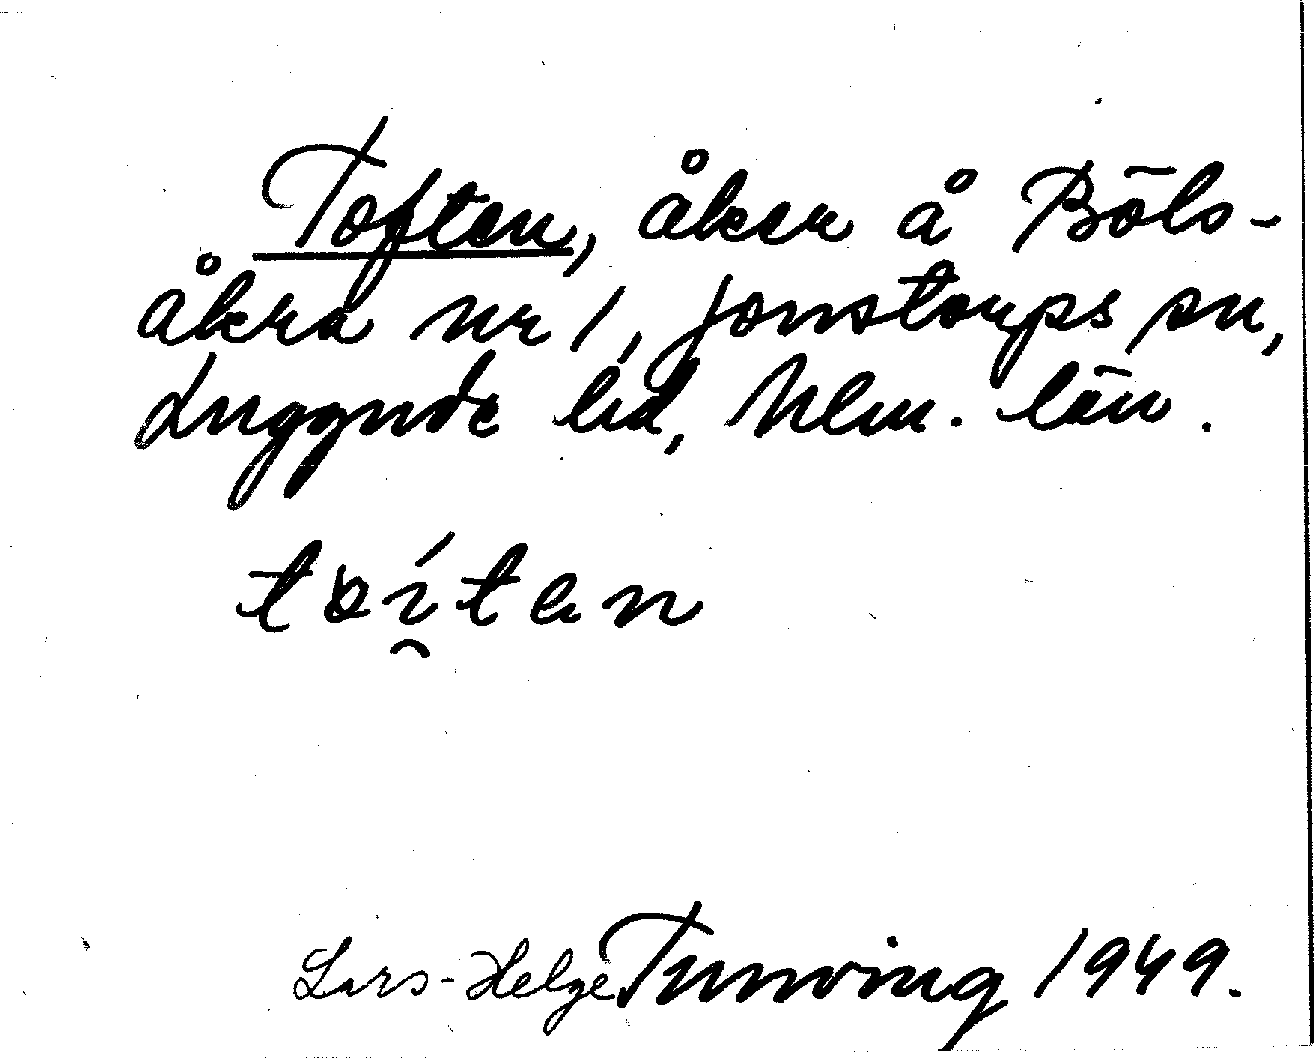 Toften, åker å Böls-
åkra nr 1, Jonstorps sn,
Luggude hd, Mlm. län.
toi̯ten
Lars-Helge Tunving 1949.